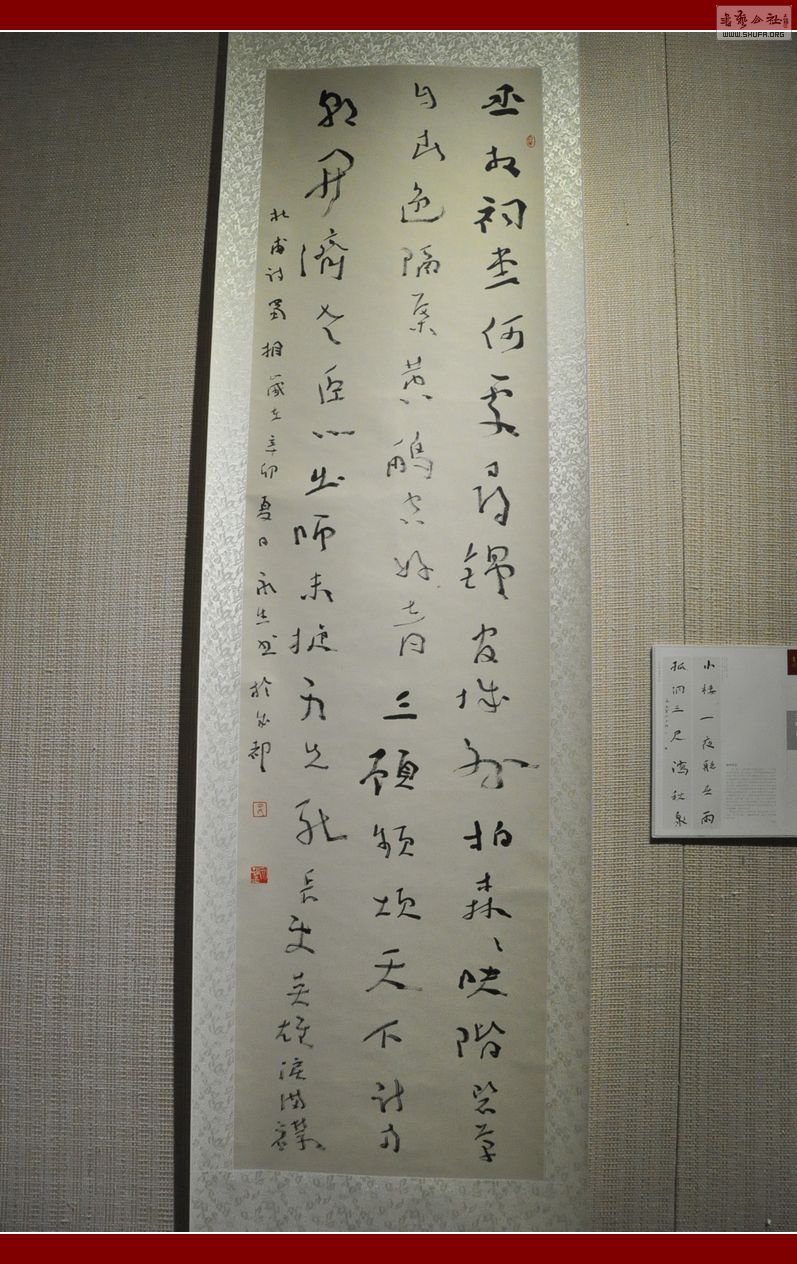 書藝公社
WWW.SHUFA.ORG
丞相祠堂何處尋錦官城外柏森〻映階碧草
自春色隔葉黃鸝空好音三顧頻煩天下計兩
朝開濟老臣心出師未捷身先死長使英雄淚滿襟
杜甫詩蜀相歲在辛卯夏日永生書於成都
小樓一夜聽春雨
孤桐三尺瀉秋泉